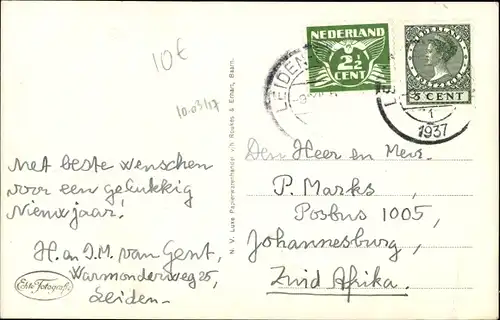 10€
10-03/17
Met beste wenschen
voor een gelukkig
Nieuwjaar!
H. en J.M. van Gent,
Warmonderweg 25,
Leiden.
Echte Fotografie
N. V. Luxe Papierwarenhandel v/h Roukes & Erhart, Baarn.
LEIDEN
NEDERLAND
2½
CENT
NEDERLAND
5 CENT
1
1937
Den Heer en Mevr.
P. Marks,
Posbus 1005,
Johannesburg,
Zuid Afrika.